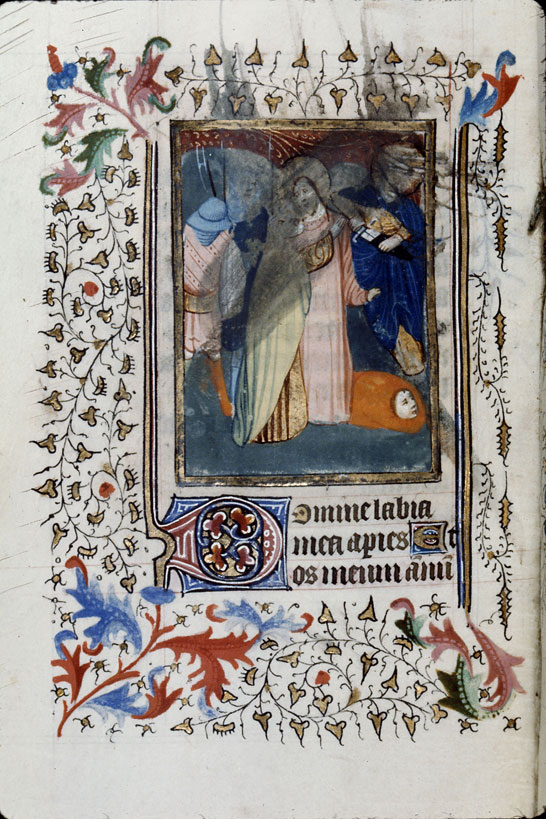 Domine labia
mea aperies Et
os meum anu